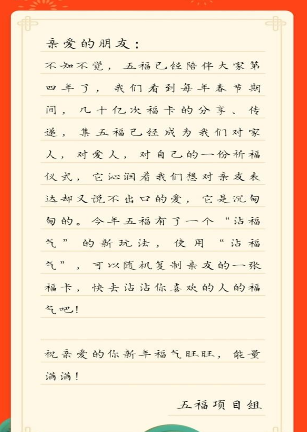 亲爱的朋友：
不知不觉，五福已经陪伴大家第
四年了，我们看到每年春节期
间，几十亿次福卡的分享、传
递，集五福已经成为我们对家
人，对爱人，对自己的一份祈福
仪式，它沁润着我们想对亲友表
达却又说不出口的爱，它是沉甸
甸的。今年五福有了一个“沾福
气”的新玩法，使用“沾福
气”，可以随机复制亲友的一张
福卡，快去沾沾你喜欢的人的福
气吧!
祝亲爱的你新年福气旺旺，能量
满满!
五福项目组